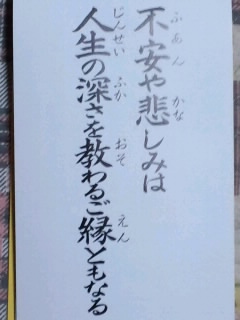 不安や悲しみは
人生の深さを教わるご縁ともなる